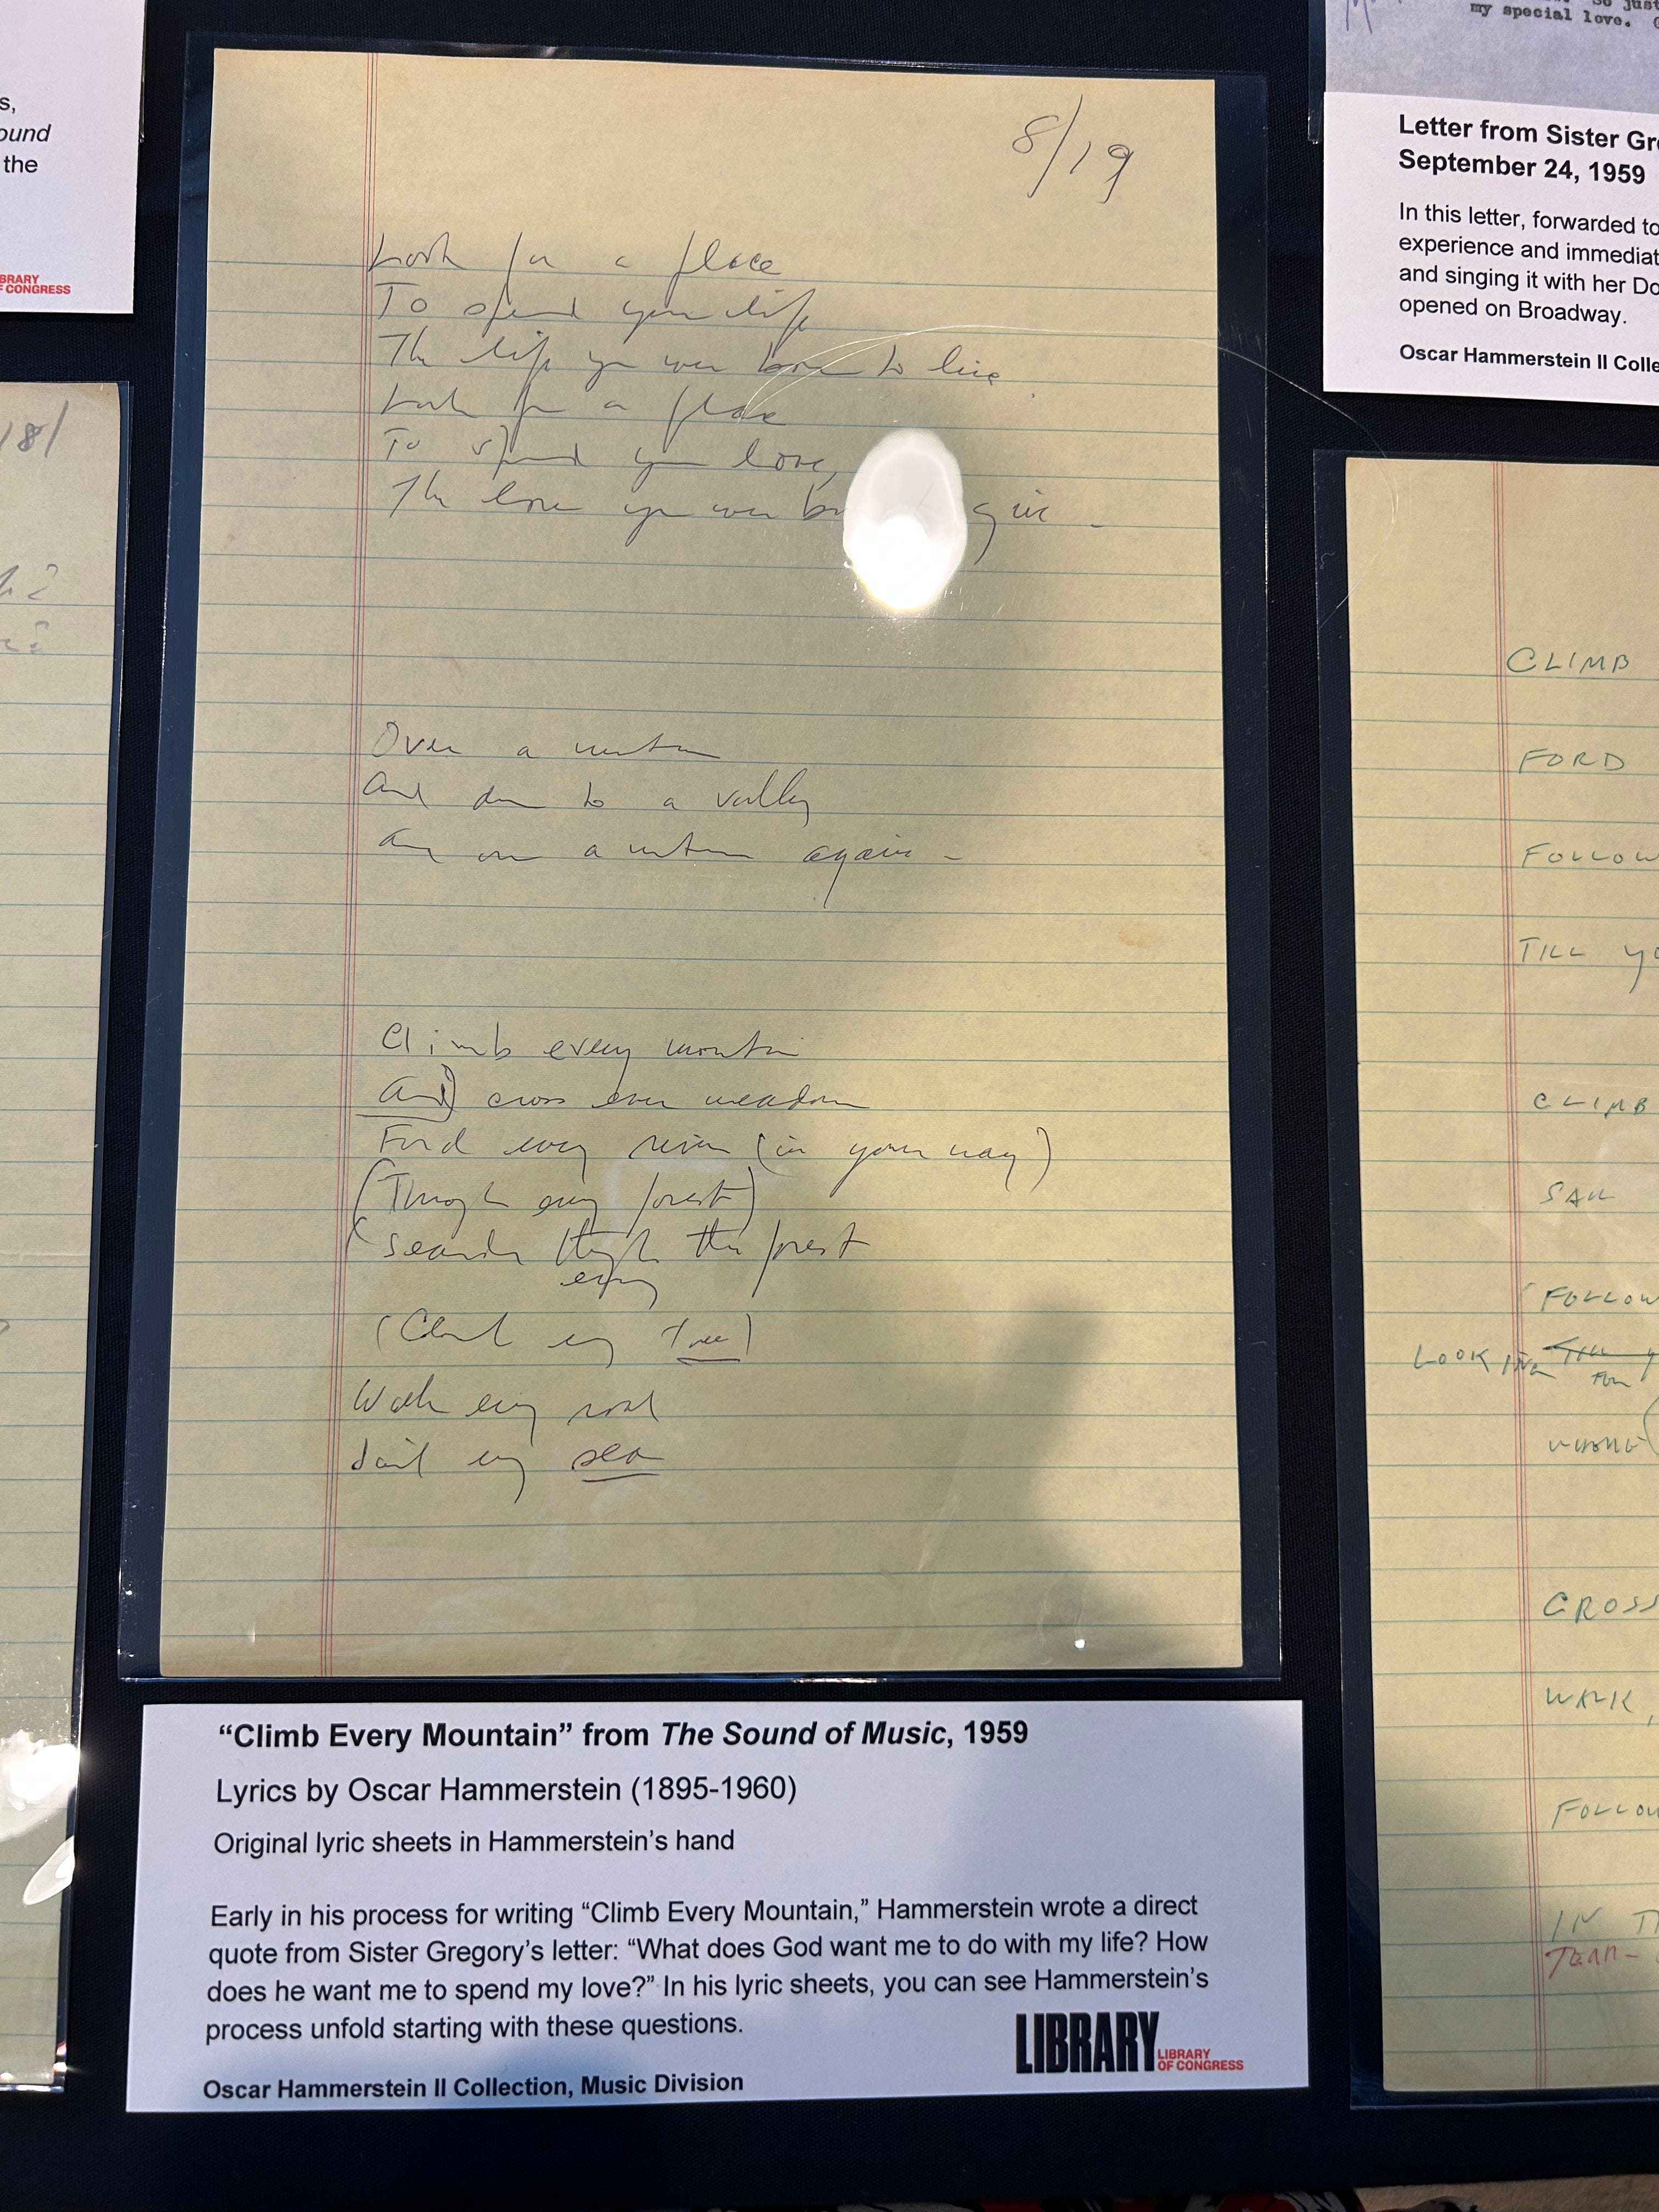 s,
ound
the
BRARY
F CONGRESS
18/
my special love.
Letter from Sister Gre
September 24, 1959
In this letter, forwarded to
experience and immediat
and singing it with her Do
opened on Broadway.
Oscar Hammerstein II Colle
8/19
Look for a place
To spend your life
The life you were born to live
Look for a place
To spend your love,
The love you were give -
Over a mountain
And down to a valley
over a mountain again -
Climb every mountain
And) cross over meadow
Ford every river (in your way)
(Through every forest)
(search through the forest
every
(Climb every tree)
Walk every road
Sail every sea
CLIMB
FORD
FOLLOW
TILL YO
CLIMB
SAIL
FOLLOW
LOOK
CROSS
WALK,
FOLLOW
IN T
“Climb Every Mountain” from The Sound of Music, 1959
Lyrics by Oscar Hammerstein (1895-1960)
Original lyric sheets in Hammerstein’s hand
Early in his process for writing “Climb Every Mountain,” Hammerstein wrote a direct
quote from Sister Gregory’s letter: “What does God want me to do with my life? How
does he want me to spend my love?” In his lyric sheets, you can see Hammerstein’s
process unfold starting with these questions.
Oscar Hammerstein II Collection, Music Division
LIBRARY
LIBRARY
OF CONGRESS